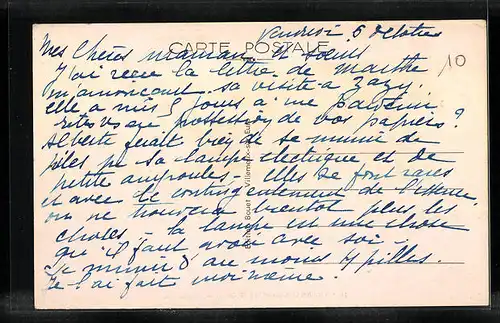 Vendredi 6 octobre
CARTE POSTALE
10
Mes chères maman et soeur
J'ai reçu la lettre de Marthe
m'annonçant sa visite a Zazy.
elle a mis 5 jours a me parvenir
êtes vs en possession de vos papiers ?
Alberte ferait bien de se munir de
piles pr sa lampe electrique et de
petite ampoules - Elles se font rares
et avec le contingentement de l'essence
on ne trouvera bientot plus les
choses - la lampe est une chose
qu'il faut avoir avec soi -
Se munir d'au moins 4 pilles.
Je l'ai fait moi même.
Bouet Villemeux-sur-Eure